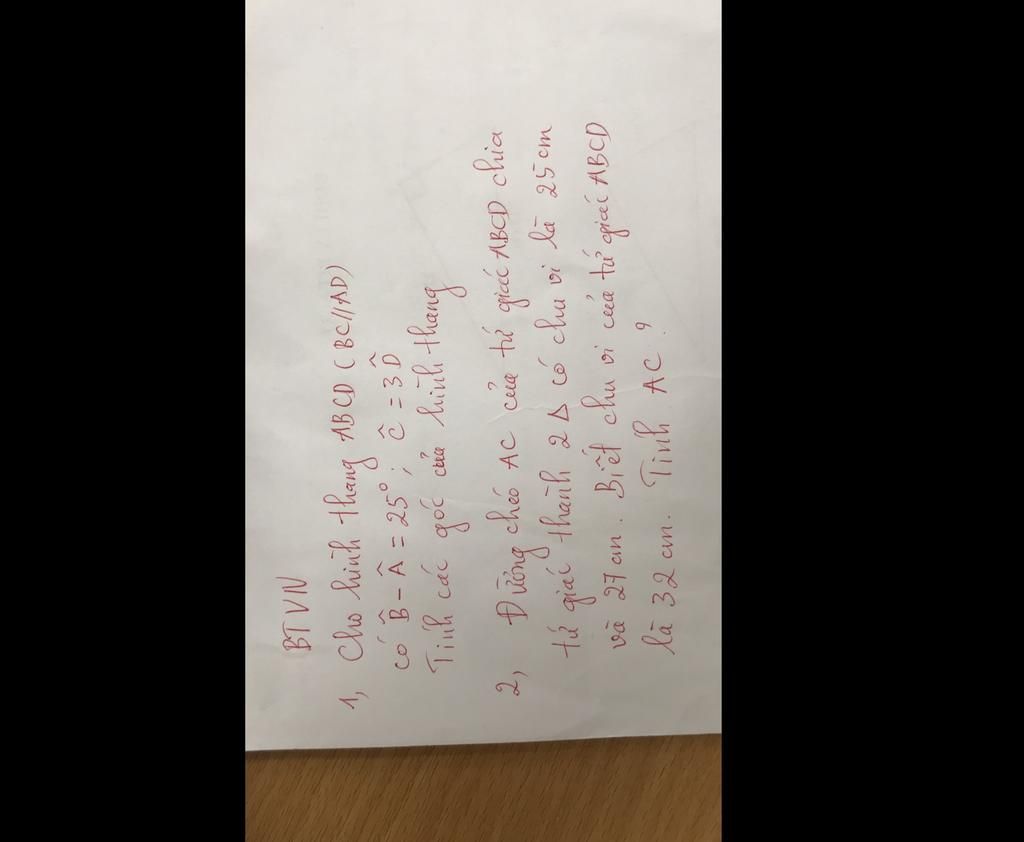 BTVN
1, Cho hình thang ABCD (BC//AD)
có B̂ - Â = 25° ; Ĉ = 3D̂
Tính các góc của hình thang
2, Đường chéo AC của tứ giác ABCD chia
tứ giác thành 2 Δ có chu vi là 25 cm
và 27 cm. Biết chu vi của tứ giác ABCD
là 32 cm. Tính AC ?